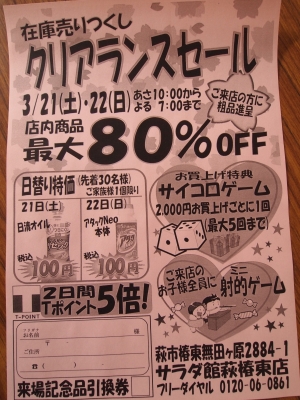 在庫売りつくし
クリアランスセール
3/21(土)・22(日)
あさ10:00から
よる 7:00まで
ご来店の方に
粗品進呈
店内商品
最大80%OFF
日替り特価
(先着30名様)
ご家族様1個限り
21日(土)
日清オイル
税込100円
22日(日)
アタックNeo
本体
税込100円
お買上げ特典
サイコロゲーム
2,000円お買上げごとに1回
(最大5回まで)
T-POINT
2日間
Tポイント5倍!
ご来店の
お子様全員に
ミニ
射的ゲーム
フリガナ
お名前
様
〒
ご住所
☎ ( )
来場記念品引換券
萩市椿東無田ヶ原2884-1
サラダ館萩椿東店
フリーダイヤル 0120-06-0861